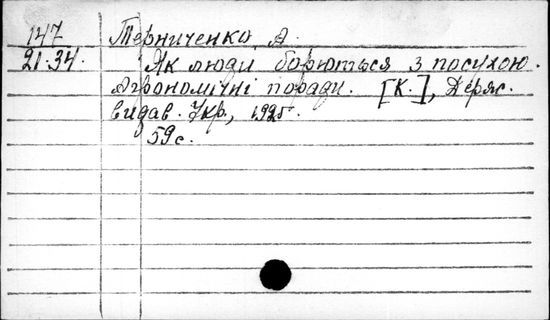 147 Терниченко, А.
21.34. Як люди борються з посухою.
Агрономічні поради. [К.], Держ.
видав. Укр., 1925.
59 с.